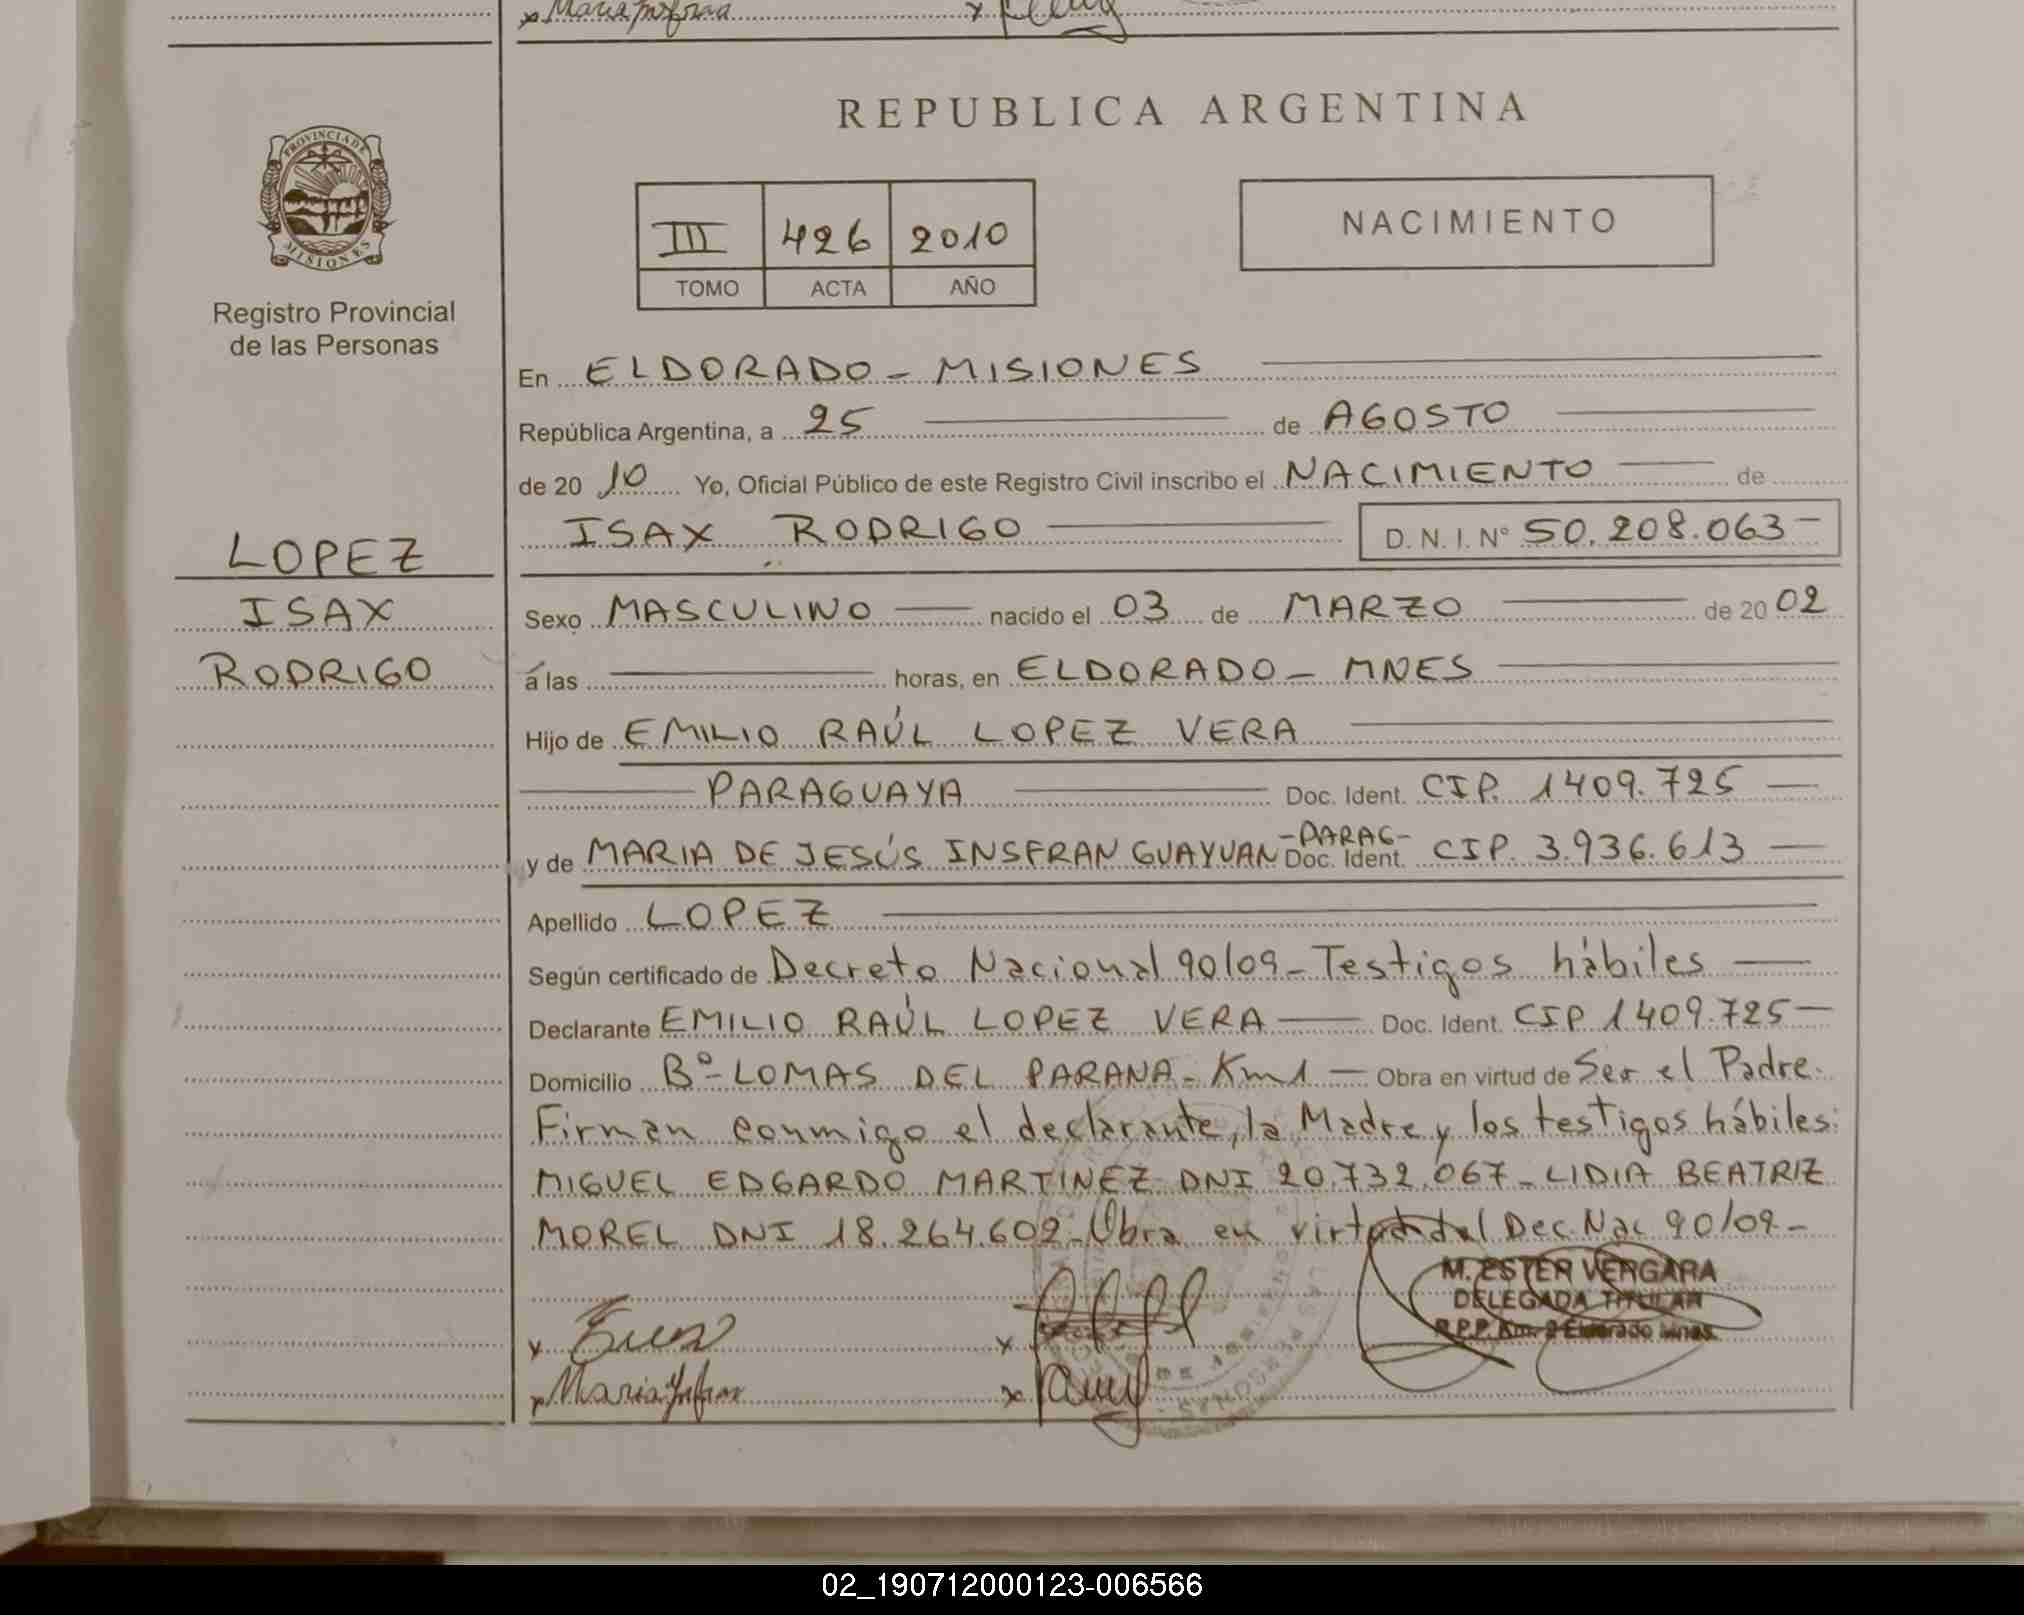 REPUBLICA ARGENTINA
PROVINCIA DE
MISIONES
Registro Provincial
de las Personas
III 426 2010
TOMO ACTA AÑO
NACIMIENTO
En ELDORADO - MISIONES
República Argentina, a 25 de AGOSTO
de 20 10 Yo, Oficial Público de este Registro Civil inscribo el NACIMIENTO de
ISAX RODRIGO D. N. I. N° 50.208.063 -
LOPEZ
ISAX
RODRIGO
Sexo MASCULINO nacido el 03 de MARZO de 20 02
á las horas, en ELDORADO - MNES
Hijo de EMILIO RAÚL LOPEZ VERA
PARAGUAYA Doc. Ident. CIP. 1409.725
y de MARIA DE JESÚS INSFRAN GUAYUAN -PARAG- Doc. Ident. CIP. 3.936.613
Apellido LOPEZ
Según certificado de Decreto Nacional 90/09 - Testigos hábiles
Declarante EMILIO RAÚL LOPEZ VERA Doc. Ident. CIP 1409.725
Domicilio Bº LOMAS DEL PARANA - Km 1 Obra en virtud de Ser el Padre.
Firman conmigo el declarante, la Madre y los testigos hábiles:
MIGUEL EDGARDO MARTINEZ DNI 20.732.067 - LIDIA BEATRIZ
MOREL DNI 18.264.602 - Obra en virtud del Dec. Nac 90/09 -
M. ESTER VERGARA
DELEGADA TITULAR
R.P.P. Km. 2 Eldorado Mnes.
x
x
x Maria Insfran
x
02_190712000123-006566